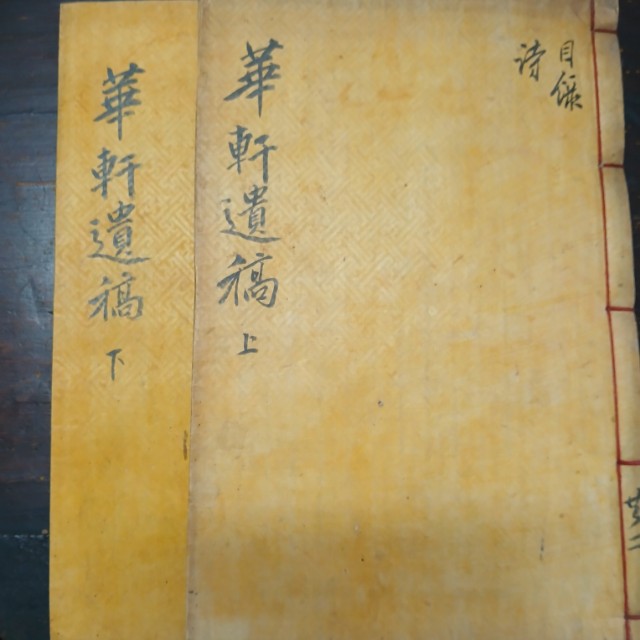 目錄
詩
華軒遺稿 上
華軒遺稿 下